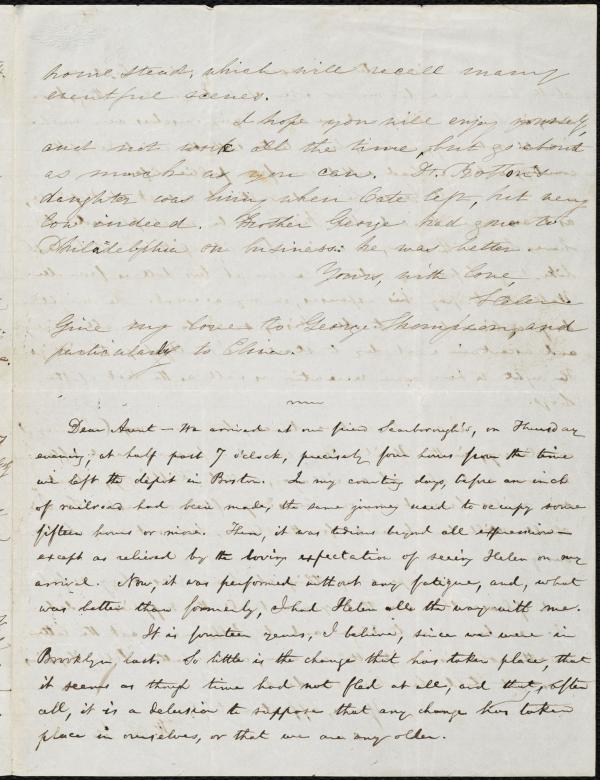 home stead, which will recall many
eventful scenes.
I hope you will enjoy yourself,
and not work all the time, but go about
as much as you can. Dr. Boston's
daughter was living when Cate left, but very
low indeed. Brother George had gone to
Philadelphia on business: he was better.
Yours, with love,
Helen
Give my love to George Thompson, and
particularly to Eliza.
Dear Aunt — We arrived at our friend Scarborough's, on Thursday
evening, at half past 7 o'clock, precisely four hours from the time
we left the depot in Boston. In my courting days, before an inch
of railroad had been made, the same journey used to occupy some
fifteen hours or more. Then, it was tedious beyond all expression—
except as relieved by the loving expectation of seeing Helen on my
arrival. Now, it was performed without any fatigue, and, what
was better than formerly, I had Helen all the way with me.
It is fourteen years, I believe, since we were in
Brooklyn, last. So little is the change that has taken place, that
it seems as though time had not fled at all, and that, after
all, it is a delusion to suppose that any change has taken
place in ourselves, or that we are any older.